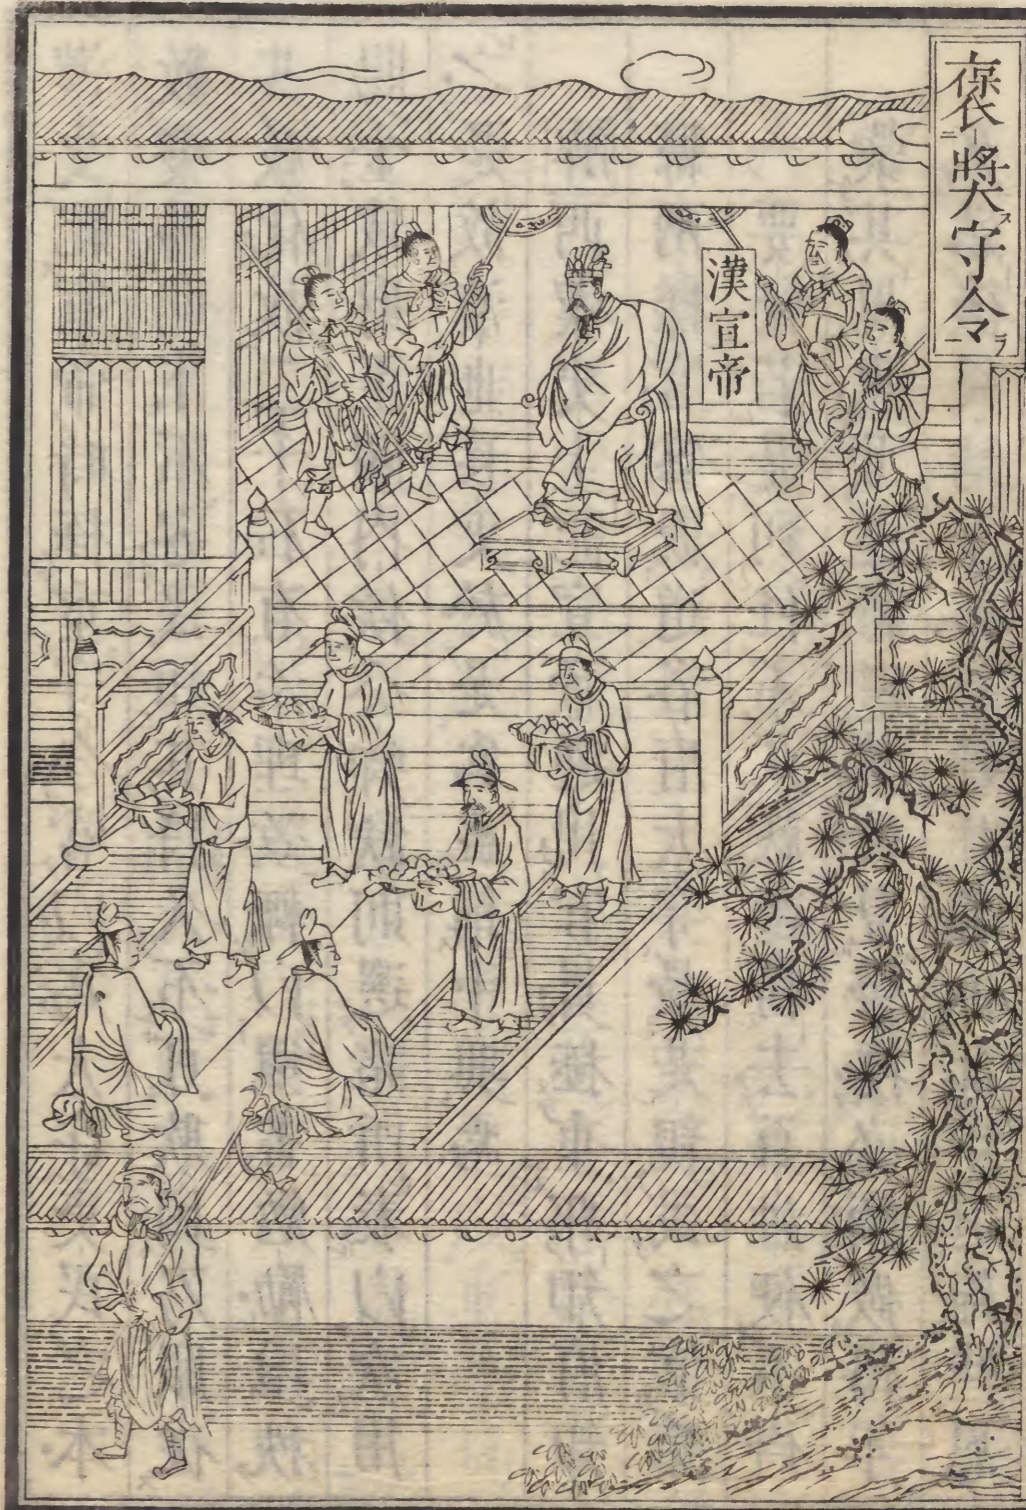 褒獎守令
漢宣帝